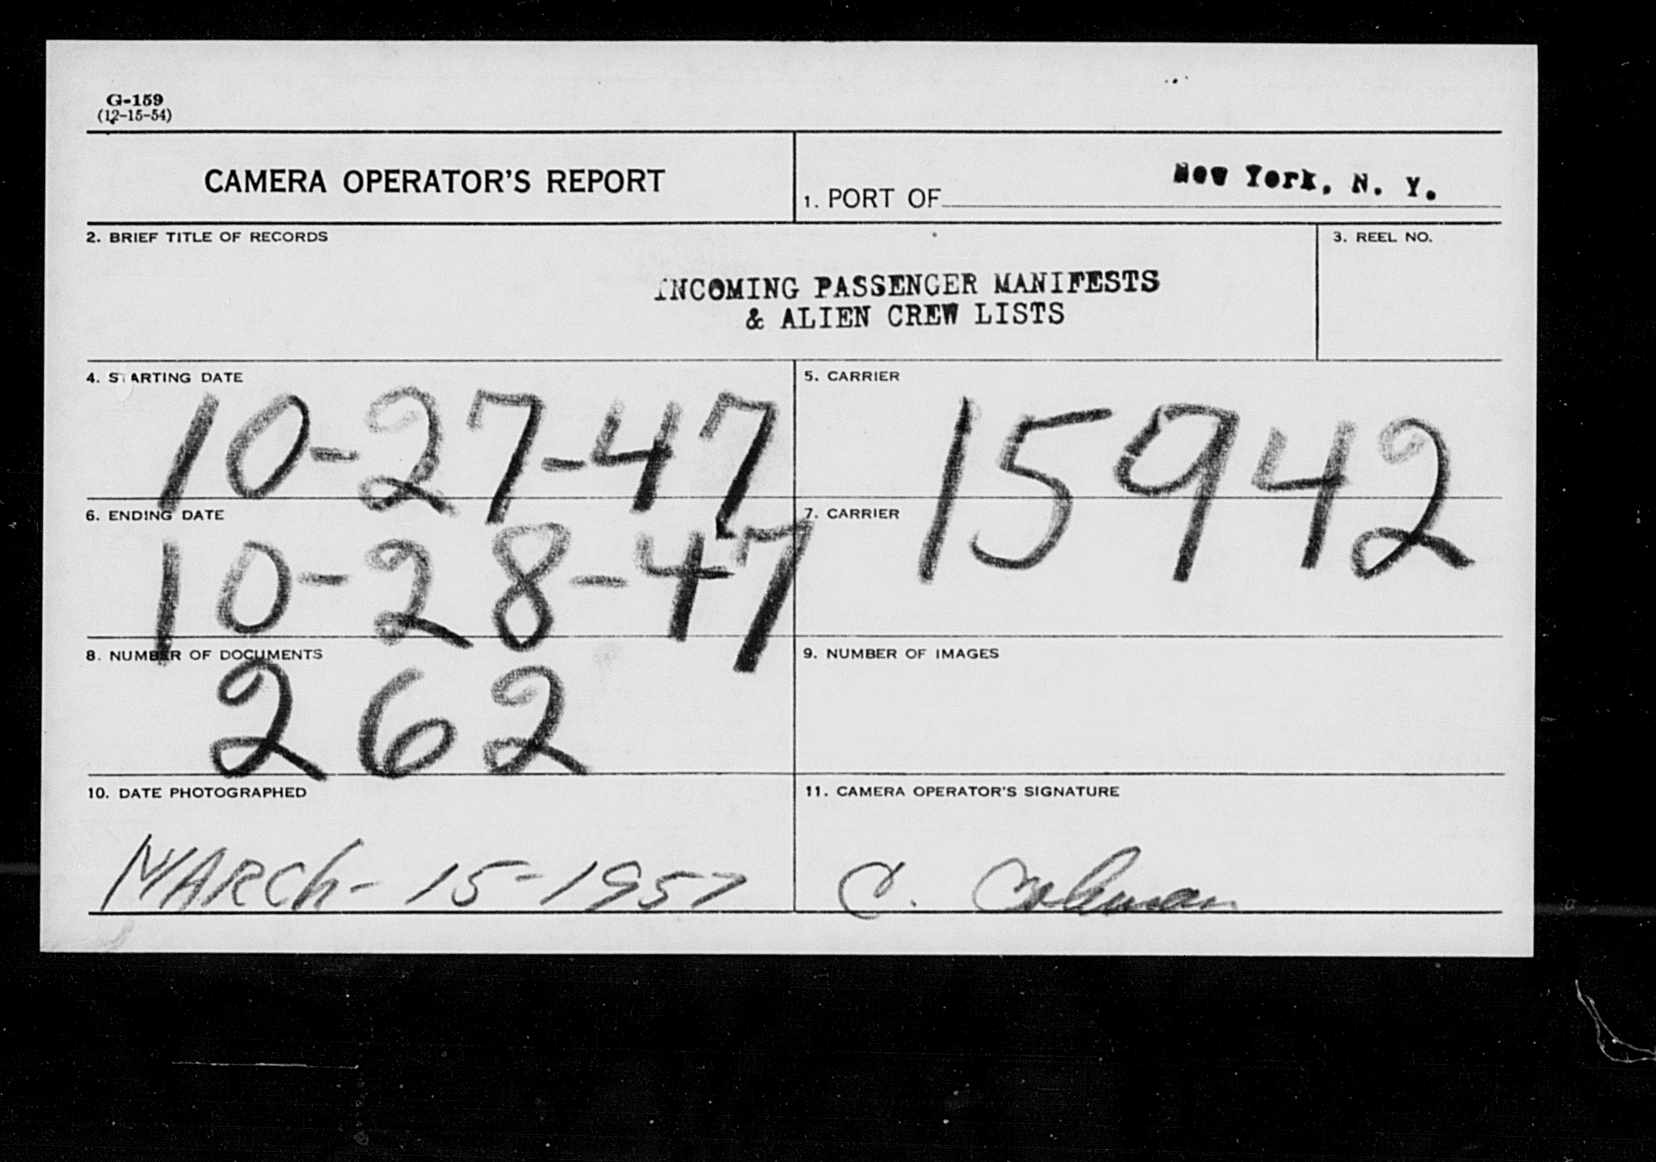 G-159
(12-15-54)
CAMERA OPERATOR'S REPORT
1. PORT OF New York, N. Y.
2. BRIEF TITLE OF RECORDS
INCOMING PASSENGER MANIFESTS
& ALIEN CREW LISTS
3. REEL NO.
4. STARTING DATE
10-27-47
5. CARRIER
15942
6. ENDING DATE
10-28-47
7. CARRIER
8. NUMBER OF DOCUMENTS
262
9. NUMBER OF IMAGES
10. DATE PHOTOGRAPHED
MARCh- 15-1957
11. CAMERA OPERATOR'S SIGNATURE
C.